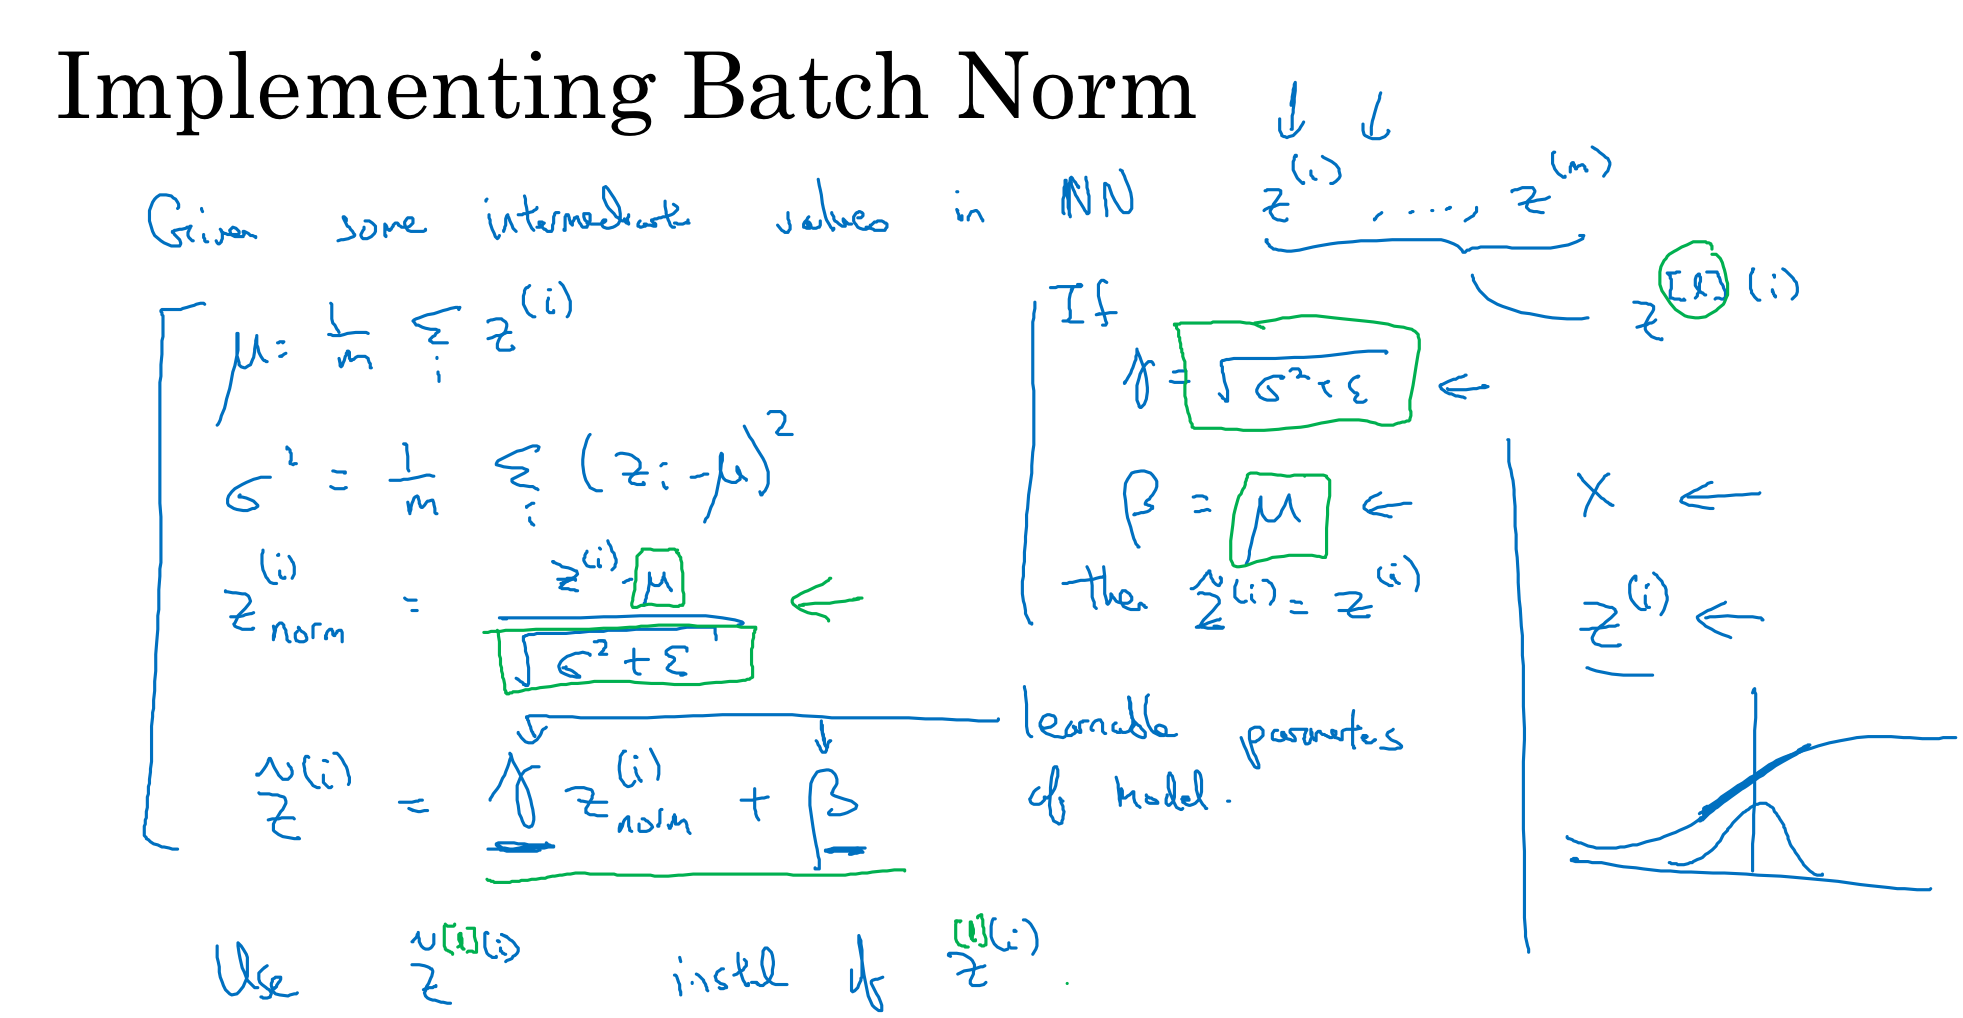 Implementing Batch Norm
Given some intermediate values in NN z⁽ⁱ⁾ , ...., z⁽ᵐ⁾
z^[l](i)
μ = 1/m Σ_i z^(i)
σ² = 1/m Σ_i (z_i - μ)²
z_norm^(i) = (z^(i) - μ) / √(σ² + ε)
z̃^(i) = γ z_norm^(i) + β
learnable parameters
of model.
If
γ = √(σ² + ε) ←
β = μ ←
then z̃^(i) = z^(i)
X ←
z^(i) ←
Use z̃^[l](i) instead of z^[l](i).